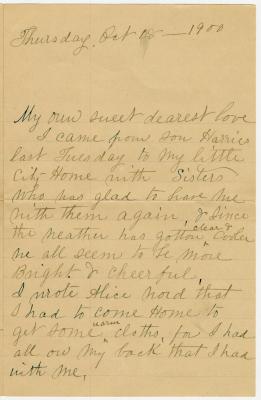 Thursday, Oct 18 — 1900
My own sweet dearest love
I came from son Harries
last Tuesday to my little
City Home with Sisters
who has glad to have me
with them again, & since
the weather has gotton clear & Cooler
we all seem to be more
Bright & Cheerful,
I wrote Alice word that
I had to come Home to
get some warm cloths, for I had
all on my back that I had
with me,